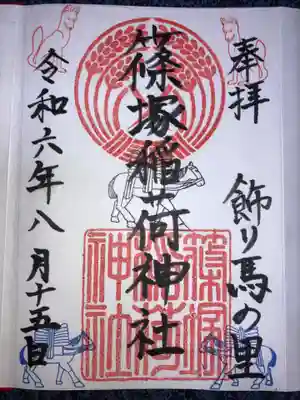 奉拝
飾り馬の里
篠塚稲荷神社
令和六年八月十五日
篠塚
稲荷
神社